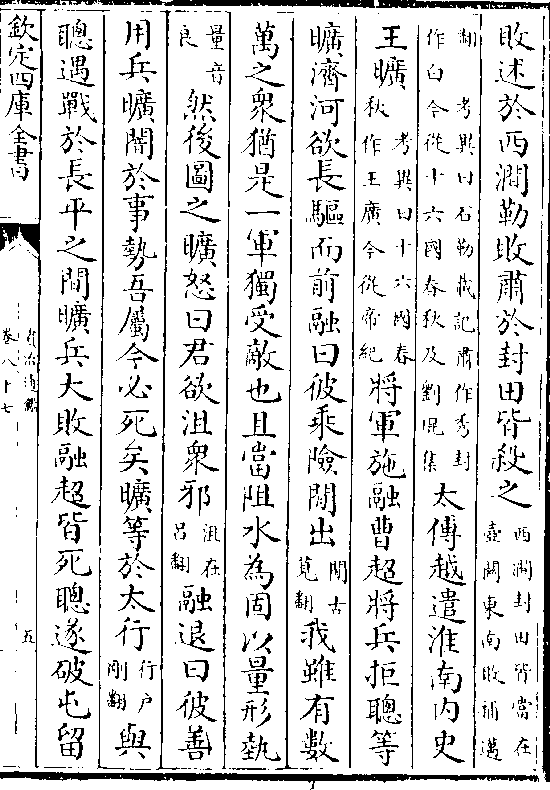 敗述於西澗勒敗肅於封田皆殺之西澗封田皆當在壺關東南敗補邁
翻考異曰石勒載記肅作秀封作白今從十六國春秋及劉琨集太傅越遣淮南内史
王曠考異曰十六國春秋作王廣今從帝紀將軍施融曹超將兵拒聰等
曠濟河欲長驅而前融曰彼乘險間出間古莧翻我雖有數
萬之衆猶是一軍獨受敵也且當阻水為固以量形埶
量音良然後圖之曠怒曰君欲沮衆邪沮在呂翻融退曰彼善
用兵曠闇於事勢吾屬今必死矣曠等於太行行戶剛翻與
聰遇戰於長平之間曠兵大敗融超皆死聰遂破屯留
欽定四庫全書
資治通鑑
卷八十七
五